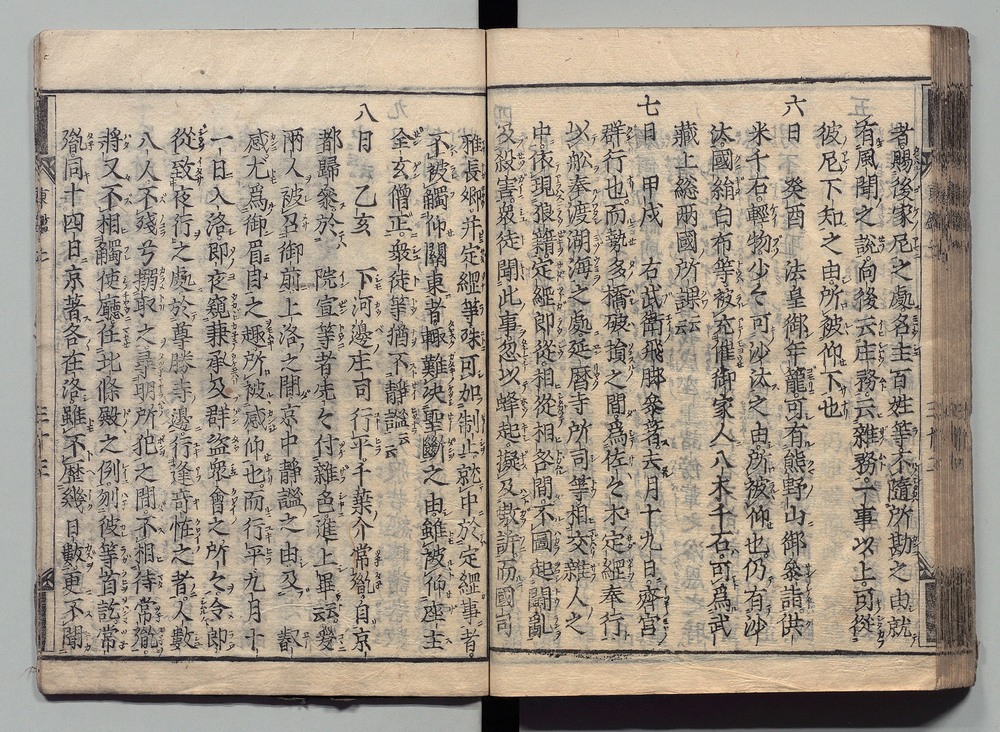 者賜後家尼之處名主百姓等不隨所勘之由就
有風聞之訟向後云庄務云雜務一事以上可從
彼尼下知之由所被仰下也
六日 癸酉 法皇御年籠可有熊野山御參詣供
米千石輕物少々可沙汰之由所被仰也仍有沙
汰國絹白布等被充催御家人八木千石可爲武
藏上総兩國所課云云
七日 甲戌 右武衛飛脚參著去月十九日齊宮
群行也而勢多橋破損之間爲佐々木定經奉行
以舩奉渡湖海之處延暦寺所司等相交雜人之
中依現狼藉定經郎從相從相各間不圖起闘亂
及殺害衆徒聞此事忽以蜂起擬及嗷訴而國司
雅長卿并定經等殊可加制止就中於定經事者
不被觸仰關東者輙難決聖斷之由雖被仰座主
全玄僧正衆徒等猶不靜謐云云
八日 乙亥 下河邊庄司行平千葉介常胤自京
都歸參於 院宣等者先々付雜色進上畢云云爰
兩人被召御前上洛之間京中靜謐之由及 叡
感尤爲御眉目之趣所被感仰也而行平九月十
一日入洛即夜窺兼承及群盜衆會之所々令郎
從致夜行之處於尊勝寺邊行逢奇恠之者人數
八人不殘弓搦取之尋明所犯之間不相待常胤
將又不相觸使廳任北條殿之例刎彼等首訖常
胤同十四日京著各在洛雖不歴幾日數更不聞